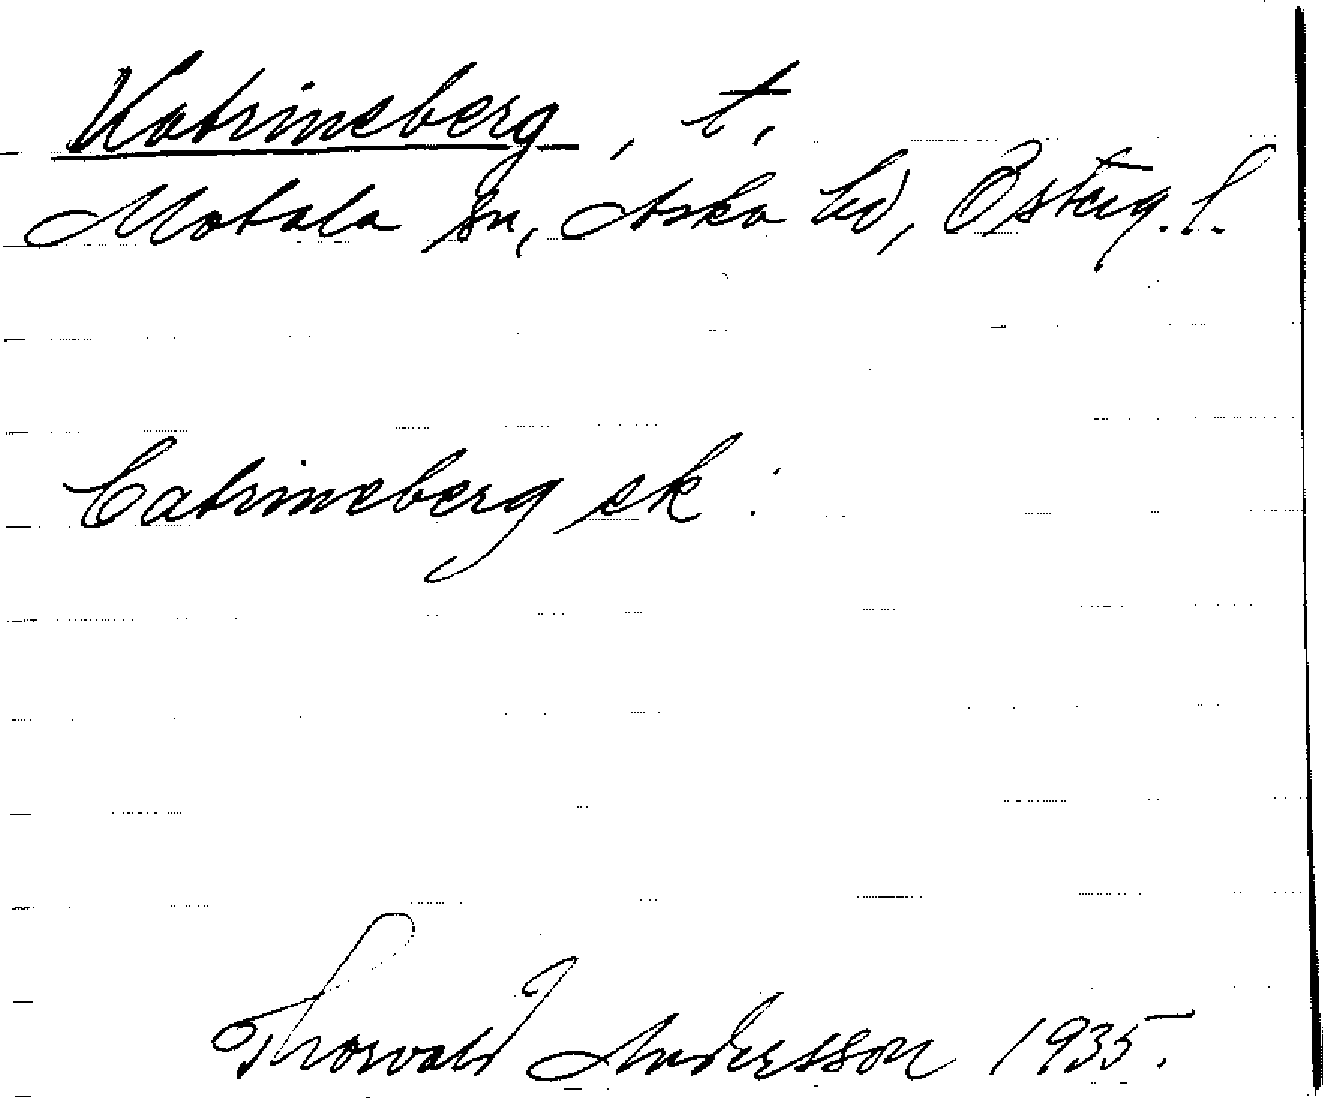 Katrineberg, t.
Motala sn, Aska hd, Österg. l.
Catrineberg ek.
Thorvald Andersson 1935.